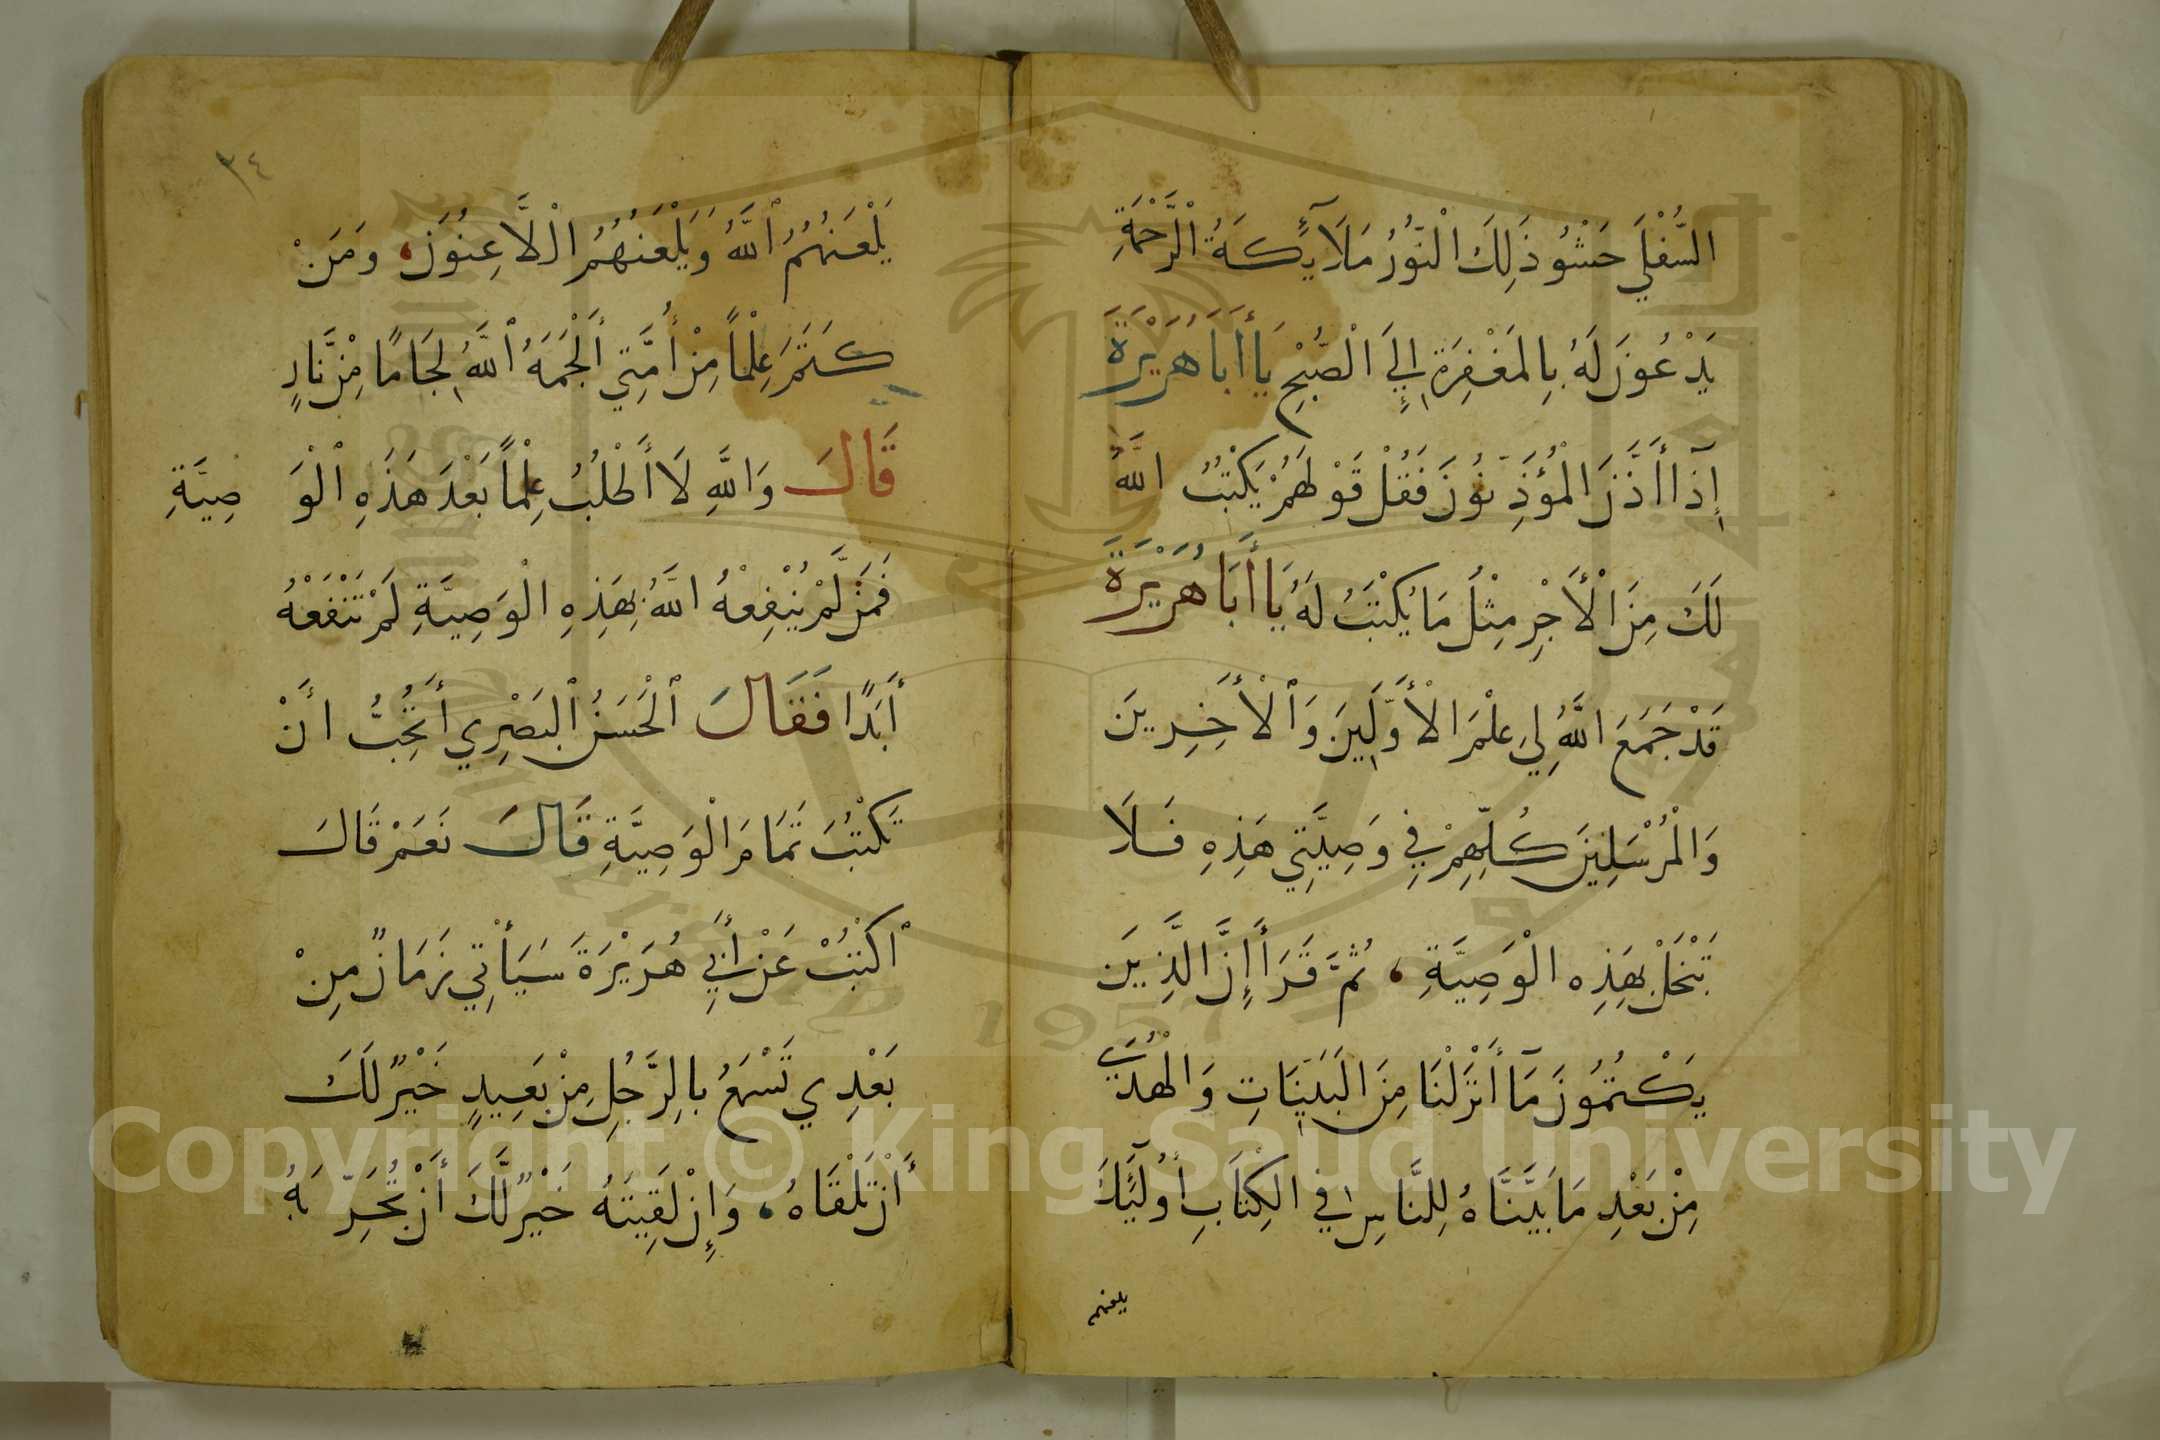 السُّفْلَي حَشْوُ ذَلِكَ الْنُّورُ مَلَآئِكَةُ الْرَّحْمَةِ
يَدْعُونَ لَهُ بِالمَغْفِرَةِ إِلَي الْصُّبْحِ يَا أَبَا هُرَيْرَةَ
إِذَا أَذَّنَ الْمُؤَذِّنُونَ فَقُلْ قَوْلَهُمْ يَكْتُبُ اللَّهُ
لَكَ مِنَ الْأَجْرِ مِثْلُ مَا يُكْتَبُ لَهُ يَا أَبَا هُرَيْرَةَ
قَدْ جَمَعَ اللَّهُ لِي عِلْمَ الْأَوَّلِينَ وَٱلْأَخِرِينَ
وَالْمُرْسَلِينَ كُلِّهِمْ فِي وَصِيَّتِي هَذِهِ فَلَا
تَبْخَلْ بِهَذِه الْوَصِيَّةِ ، ثُمَّ قَرَأَ إِنَّ الَّذِينَ
يَكْتُمُونَ مَآ أَنْزَلْنَا مِنَ الَبَيِّنَاتِ وَالْهُدَي
مِنْ بَعْدِ مَا بَيَّنَّاهُ لِلنَّاسِ فِي الكِتَابِ أُولَٓئِكَ
يلعنهم
٣٤
يَلْعَنُهُمُ ٱللَّهُ وَيَلْعَنُهُمُ الْلَّاعِنُونَ ، وَمَنْ
كَتَمَ عِلْمًا مِنْ أُمَّتِي أَلْجَمَهُ ٱللَّهُ لِجَامًا مِنْ نَّارٍ
قَالَ وَاللَّهِ لَا أَطْلُبُ عِلْمًا بَعْدَ هَذِهِ ٱلْوَصِيَّةِ
فَمَنْ لَّمْ يُنْفِعْهُ اللَّهُ بِهَذِهِ الْوَصِيَّةِ لَمْ تَنْفَعْهُ
أَبَدًا فَقَالَ ٱلْحَسَنُ الْبَصْرِي أَتُحِبُّ أَنْ
تَكْتُبَ تَمَامَ الْوَصِيَّةِ قَالَ نَعَمْ قَالَ
ٱكْتُبْ عَنْ أَبِي هُرَيْرَةَ سَيَأْتِي زَمَانٌ مِنْ
بَعْدِي تَسْمَعُ بالِرَّجُلِ مِنْ بَعِيدٍ خَيْرٌ لَكَ
أَنْ تَلْقَاهُ ، وَإِنْ لَقِيتَهُ خَيْرٌ لَّكَ أَنْ تُجَرِّبَهُ
Copyright © King Saud University
1957